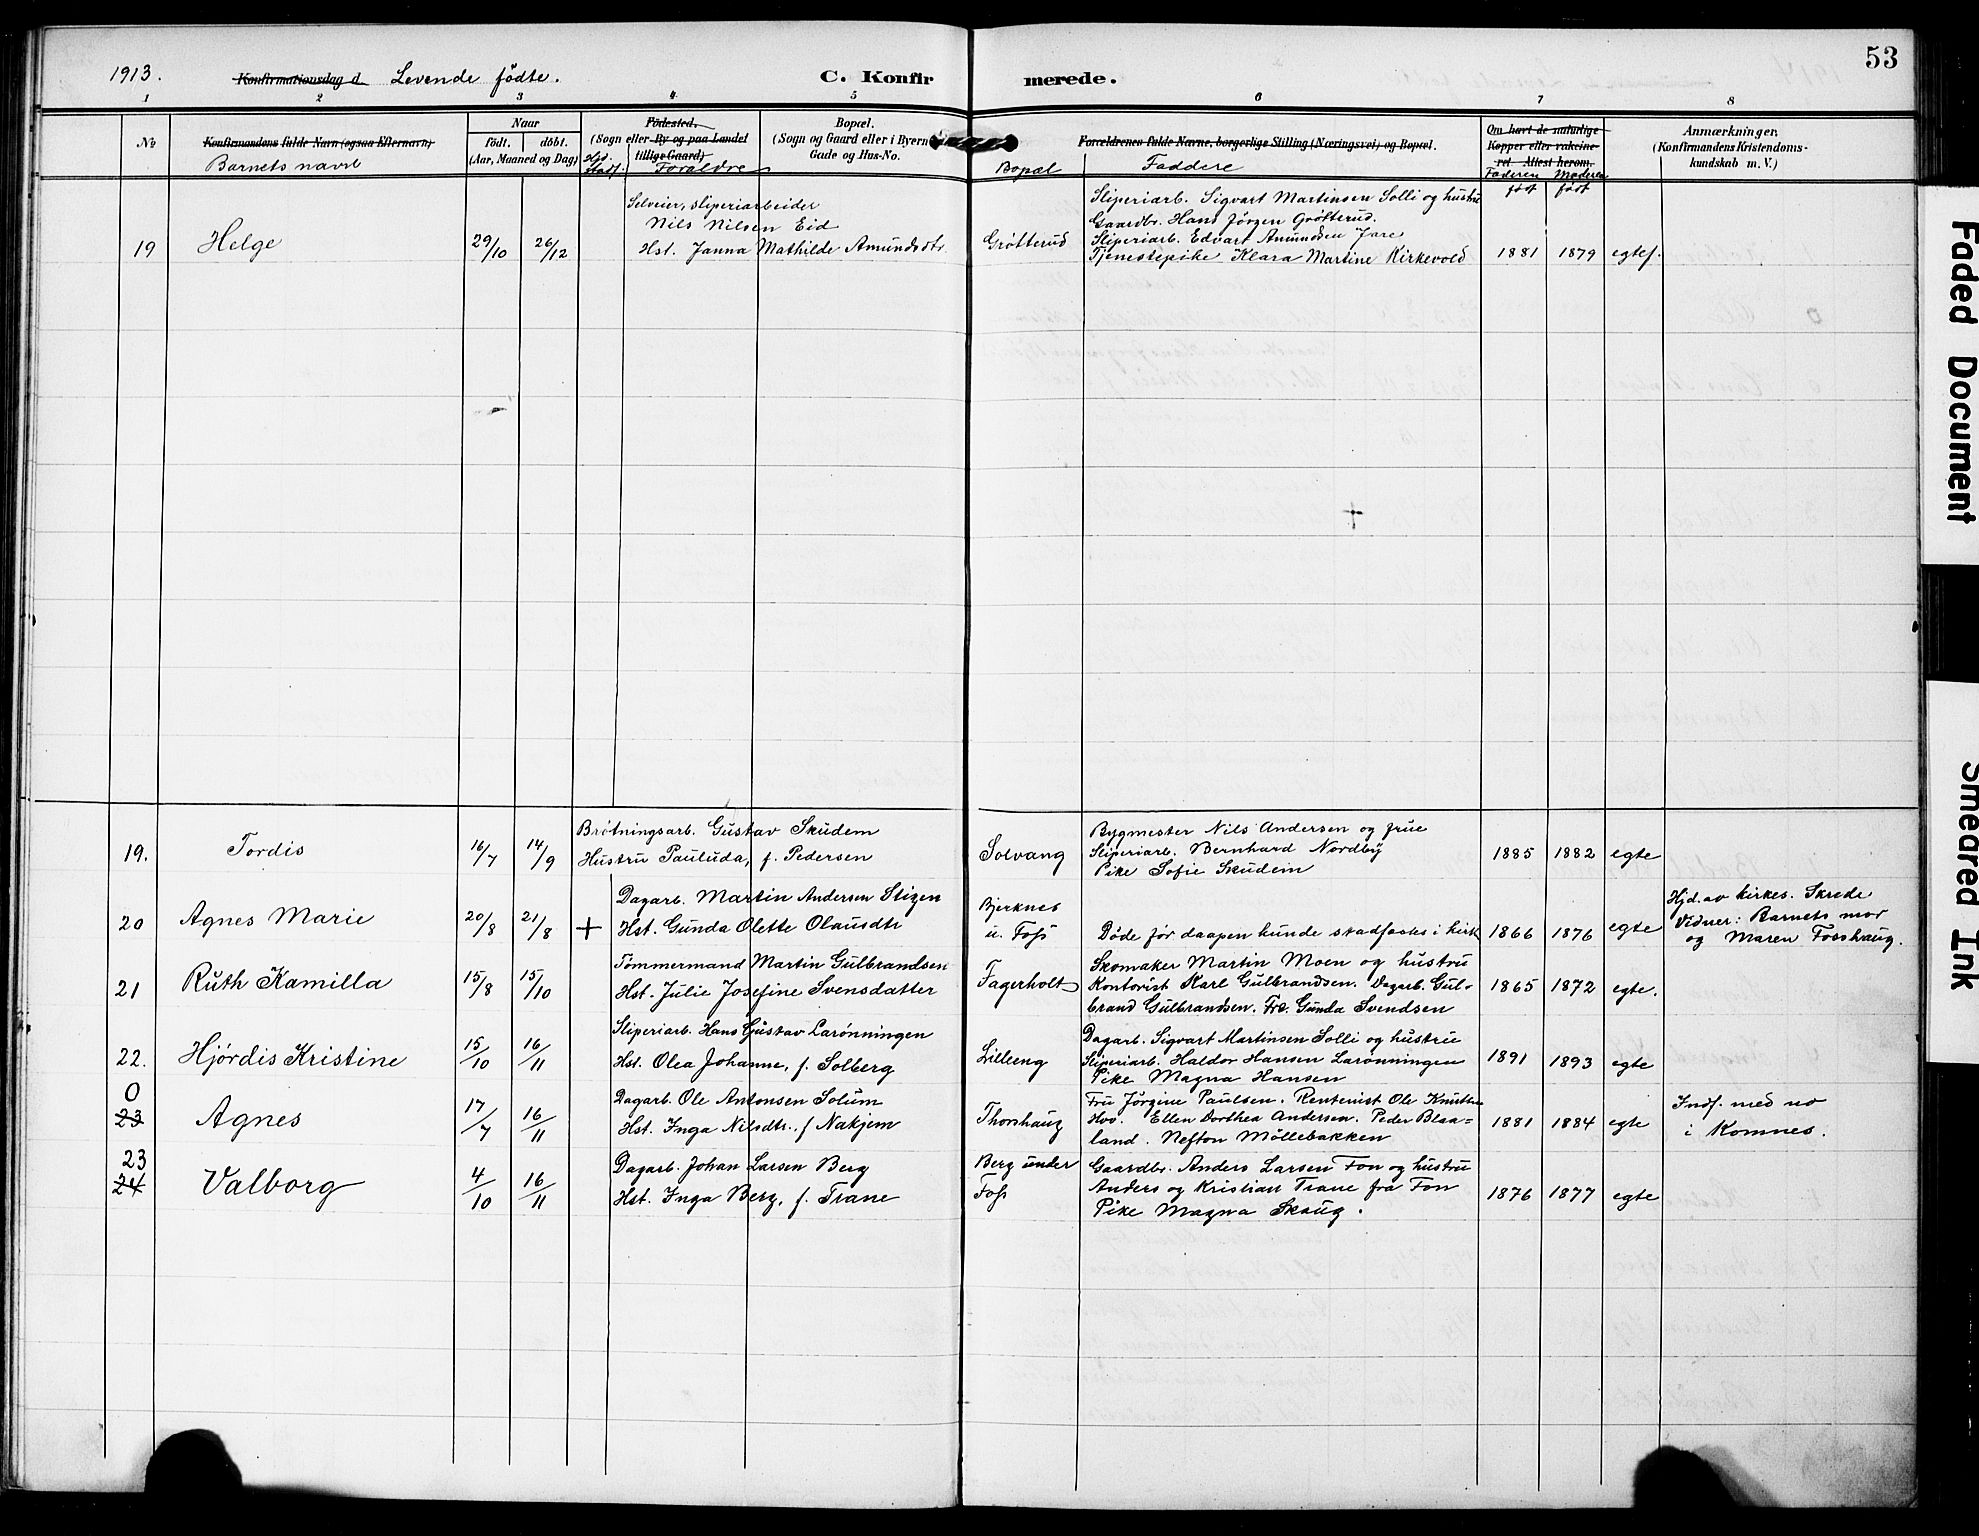 53
1913. Konfirmationsdag d. Levende fødte. C. Konfirmerede.
1 2 3 4 5 6 7 8
No
Konfirmandens fulde Navn (ogsaa Efternavn)
Barnets navn
Naar
født. døbt.
(Aar, Maaned og Dag)
Fødested.
(Sogn eller By og paa Landet
tillige Gaard)
Foræidre
Bopæl.
(Sogn og Gaard eller i Byern
Gade og Hus-No.
Bopæl
Forældrenes fulde Navne, borgerlige Stilling (Næringsvei) og Bopæl.
Faddere
Om havt de naturlige
Kopper eller vakcine-
ret. Attest herom.
Faderen Moderen
født født
Anmærkninger.
(Konfirmandens Kristendoms-
kundskab m. V.)
19 Helge 29/10 26/12
Selveier, sliperiarbeider
Nils Nilsen Eid
Hst. Janna Mathilde Amundsdtr.
Grøtterud
Sliperiarb. Sigvart Martinsen Solli og hustru
Gaardbr. Hans Jørgen Grøtterud.
Sliperiarb. Edvart Amundsen Jare
Tjenestepike Klara Martine Kirkevold
1881 1879 egtef.
19. Tordis 16/7 14/9
Brøtningsarb. Gustav Skudem
Hustru Pauluda, f. Pedersen
Solvang
Bygmester Nils Andersen og frue
Sliperiarb. Bernhard Nordby
Pike Sofie Skudem
1885 1882 egte
20 Agnes Marie 20/8 21/8 +
Dagarb. Martin Andersen Stigen
Hst. Gunda Olette Olausdtr
Bjerknes
u. Foss
Døde før daapen kunde stadfæstes i kirk
1866 1876 egte
Hjd. av kirkes. Skrede
Vidner: Barnets mor
og Maren Fosshaug.
21 Ruth Kamilla 15/8 15/10
Tømmermand Martin Gulbrandsen
Hst. Julie Josefine Svensdatter
Fagerholt
Skomaker Martin Moen og hustru
Kontorist Karl Gulbrandsen. Dagarb. Gul-
brand Gulbrandsen. Frk. Gunda Svendsen
1865 1872 egte.
22. Hjørdis Kristine 15/10 16/11
Sliperiarb. Hans Gustav Larønningen
Hst. Olea Johanne, f. Solberg
Lilleeng
Dagarb. Sigvart Martinsen Solli og hustru
Sliperiarb. Haldor Hansen Larønningen
Pike Magna Hansen
1891 1893 egte
0
23 Agnes 17/7 16/11
Dagarb. Ole Antonsen Solum
Hst. Inga Nilsdtr. f Nakjem
Thorshaug
Fru Jørgine Paulsen. Rentenist Ole Knutsen
Hvo. Ellen Dorthea Andersen. Peder Blaa-
land. Nefton Møllebakken
1881 1884 egte
Indf. med no
i Komnes.
23
24 Valborg 4/10 16/11
Dagarb. Johan Larsen Berg
Hst. Inga Berg, f. Trane
Berg under
Foss
Gaardbr. Anders Larsen Fon og hustru
Anders og Kristian Trane fra Fon
Pike Magna Skaug.
1876 1877 egte
Faded Document
Smeared Ink